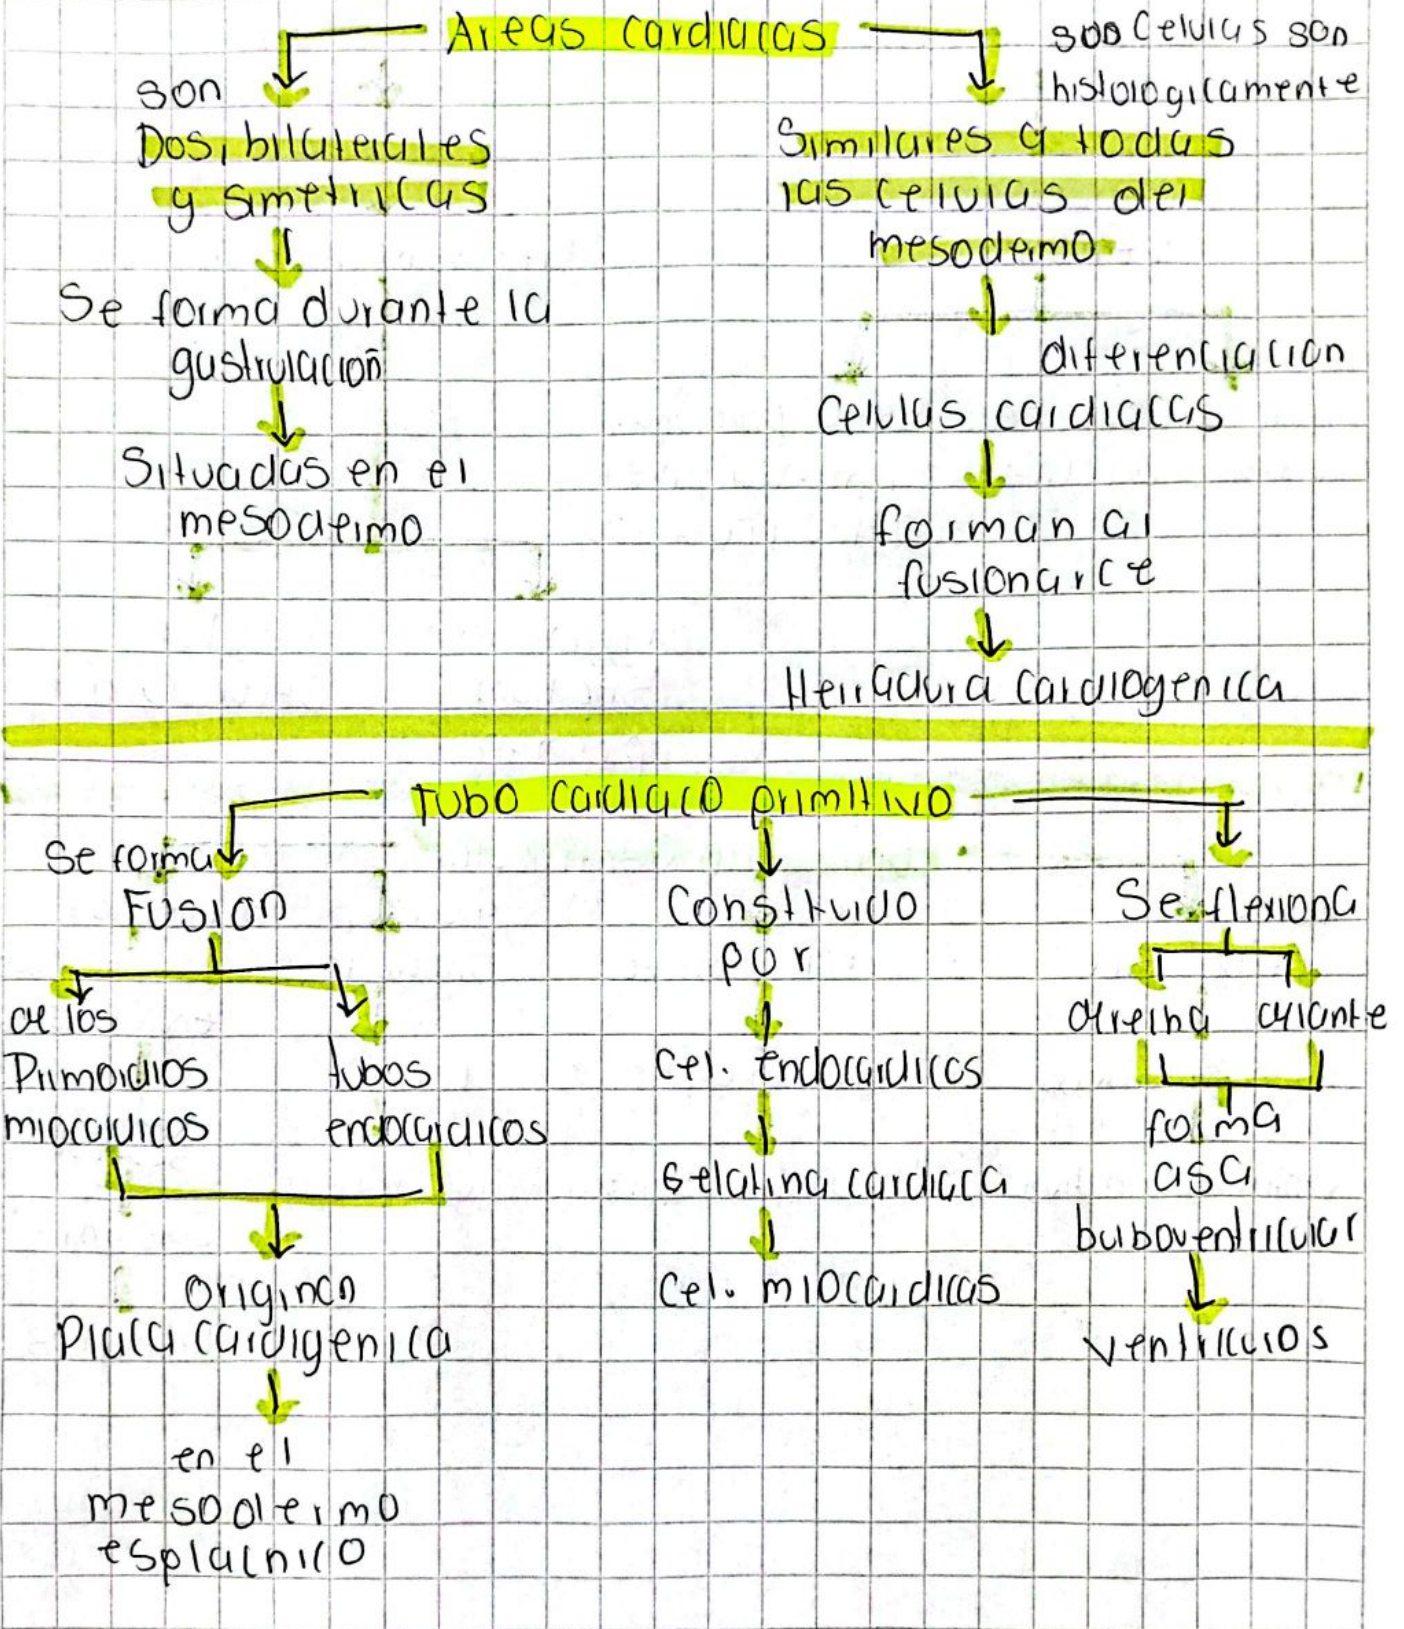 Areas cardiacas
son
Dos, bilaterales
y simetricas
Se forma durante la
gastrulación
Situadas en el
mesodermo
sus Celulas son
histologicamente
Similares a todas
las celulas del
mesodermo
diferenciacion
Celulas cardiacas
forman al
fusionarce
Herradura cardiogenica
Tubo cardiaco primitivo
Se forma
Fusion
de los
Primordios
miocardicos
tubos
endocardicos
originan
Placa cardigenica
en el
mesodermo
esplacnico
Constituido
por
Cel. endocardicas
Gelatina cardiaca
Cel. miocardicas
Se flexiona
dereha
delante
forma
asa
buboventricular
ventriculos